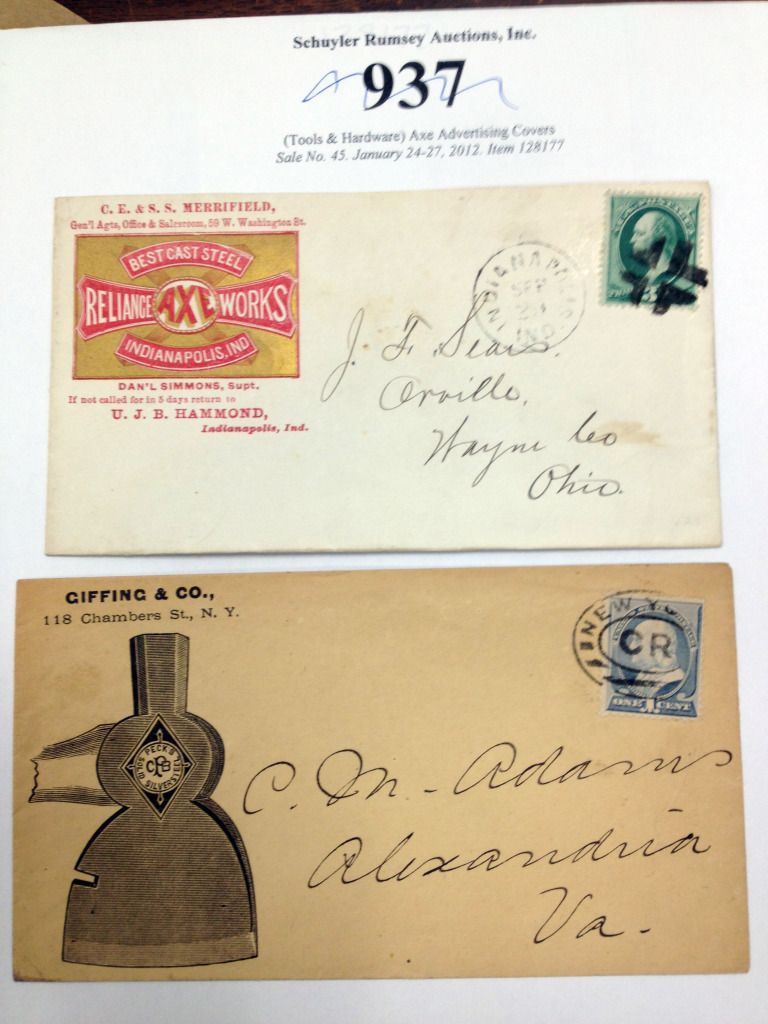 Schuyler Rumsey Auctions, Inc.
937
(Tools & Hardware) Axe Advertising Covers
Sale No. 45. January 24-27, 2012. Item 128177
C. E. & S. S. MERRIFIELD,
Gen'l Agts, Office & Salesroom, 59 W. Washington St.
BEST CAST STEEL
RELIANCE AXE WORKS
INDIANAPOLIS, IND
DAN'L SIMMONS, Supt.
If not called for in 5 days return to
U. J. B. HAMMOND,
Indianapolis, Ind.
INDIANAPOLIS
IND.
J. F. Sears.
Orville,
Wayne Co
Ohio.
GIFFING & CO.,
118 Chambers St., N. Y.
PECK'S
CPB
SILVER STEEL
NEW Y
CR
ONE 1 CENT
C. M. Adams
Alexandria
Va.